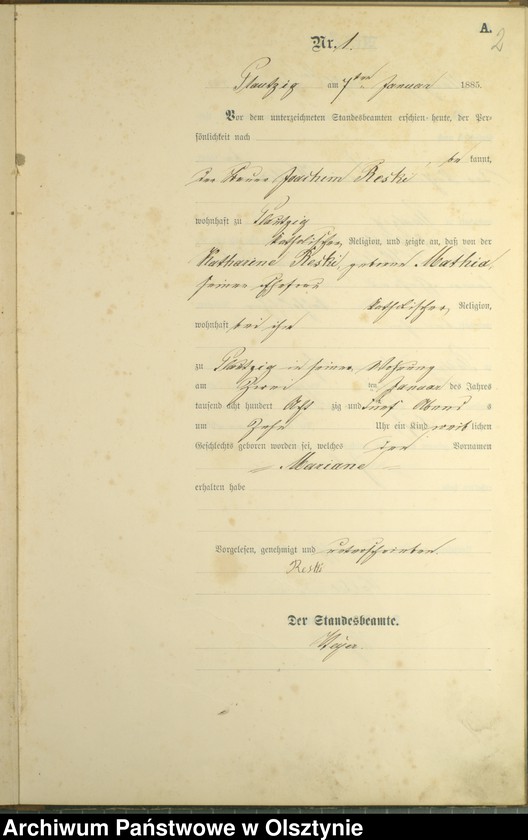 A.
2
Nr. 1.
Plautzig am 7ten Januar 1885.
Vor dem unterzeichneten Standesbeamten erschien heute, der Per-
sönlichkeit nach
be kannt,
der Bauer Joachim Reski
wohnhaft zu Plautzig
katholischer Religion, und zeigte an, daß von der
Katharine Reski, geborene Mathia,
seiner Ehefrau
katholischer, Religion,
wohnhaft bei ihm
zu Plautzig in seiner Wohnung
am ten Januar des Jahres
tausend acht hundert Acht zig und fünf Abends
um Zehn Uhr ein Kind weib lichen
Geschlechts geboren worden sei, welches den Vornamen
Mariane
erhalten habe
Vorgelesen, genehmigt und unterschrieben.
Reski
Der Standesbeamte.
Archiwum Państwowe w Olsztynie